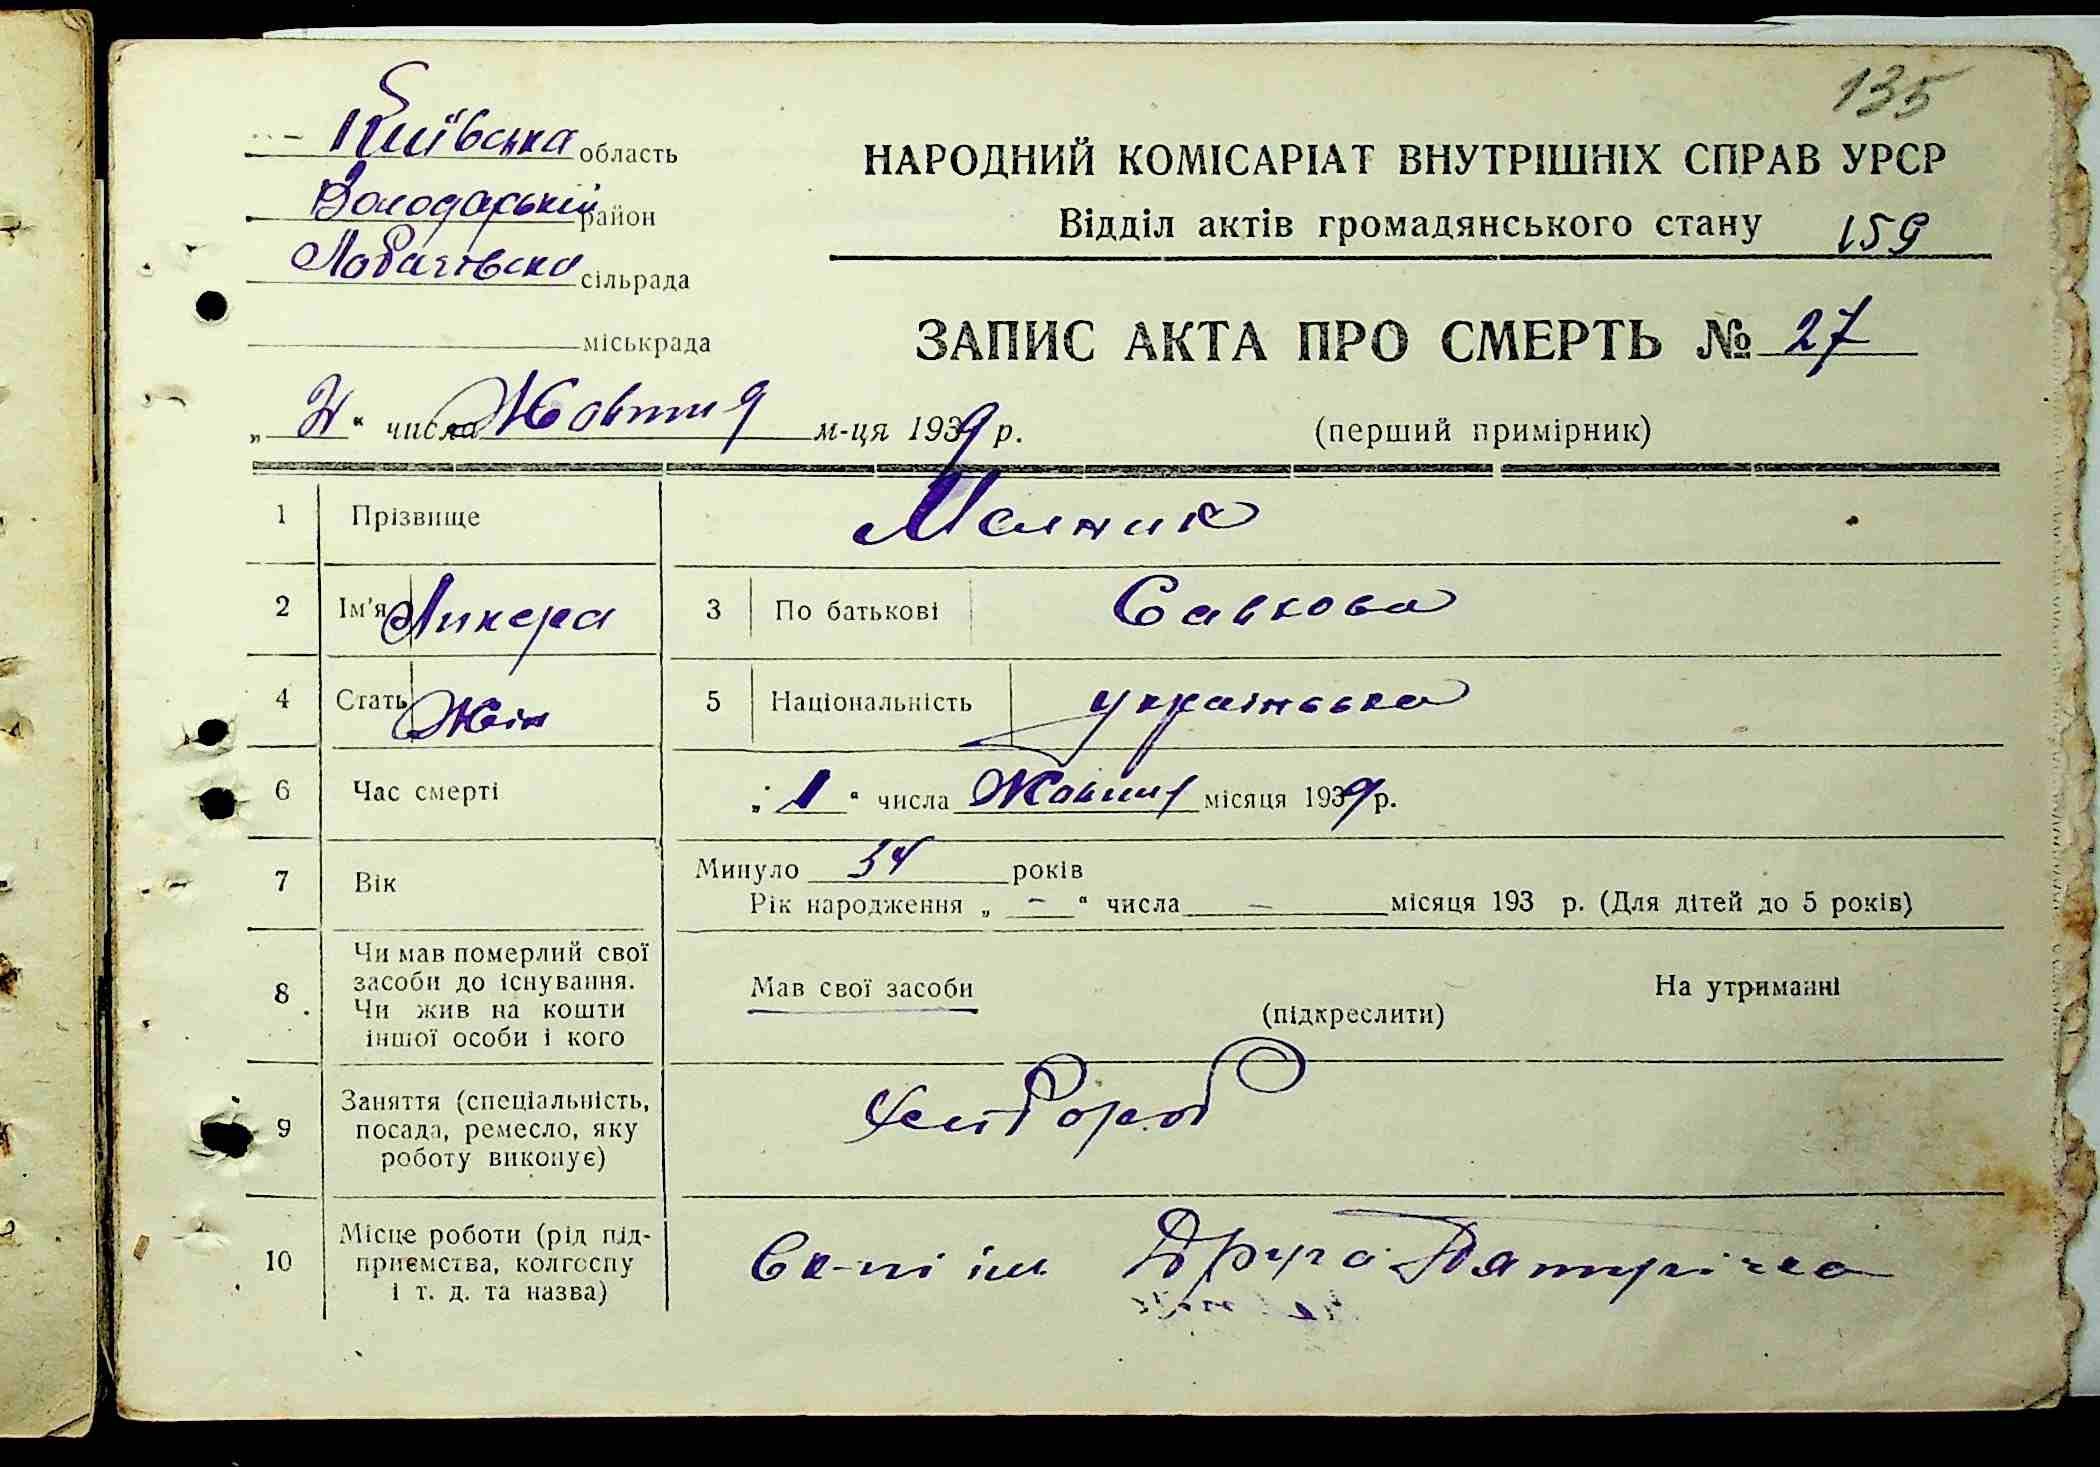 135
Київська область
Володарський район
Лобачівска сільрада
міськрада
НАРОДНИЙ КОМІСАРІАТ ВНУТРІШНІХ СПРАВ УРСР
Відділ актів громадянського стану 159
ЗАПИС АКТА ПРО СМЕРТЬ № 27
(перший примірник)
„ “ числа Жовтня м-ця 1939 р.
1 Прізвище Мелник
2 Ім'я Ликера 3 По батькові Савкова
4 Стать Жін 5 Національність українська
6 Час смерті „1“ числа Жовтня місяця 1939 р.
7 Вік Минуло 34 років
Рік народження „ - “ числа - місяця 193 р. (Для дітей до 5 років)
8 Чи мав померлий свої
засоби до існування.
Чи жив на кошти
іншої особи і кого
Мав свої засоби (підкреслити) На утриманні
9 Заняття (спеціальність,
посада, ремесло, яку
роботу виконує)
10 Місце роботи (рід під-
приємства, колгоспу
і т. д. та назва)
ім Друга Пятирічка